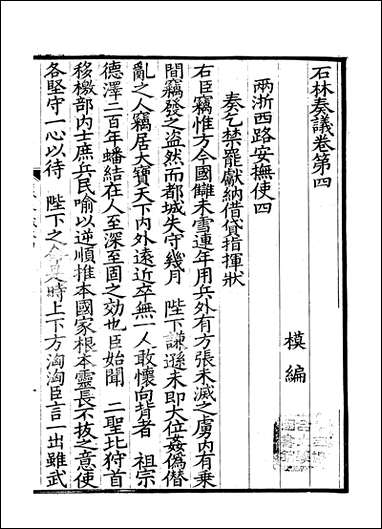 石林奏議卷第四
模編
兩浙西路安撫使四
奏乞禁罷獻納借貸指揮狀
右臣竊惟方今國讎未雪連年用兵外有方張未滅之虜内有乗
間竊發之盗然而都城失守幾月 陛下謙遜未即大位姦偽僣
亂之人竊居大寶天下内外遠近卒無一人敢懷向背者 祖宗
德澤二百年蟠結在人至深至固之効也臣始聞 二聖北狩首
移檄部内士庶兵民喻以逆順推本國家根本靈長不拔之意使
各堅守一心以待 陛下之命是時上下方洶洶臣言一出雖武